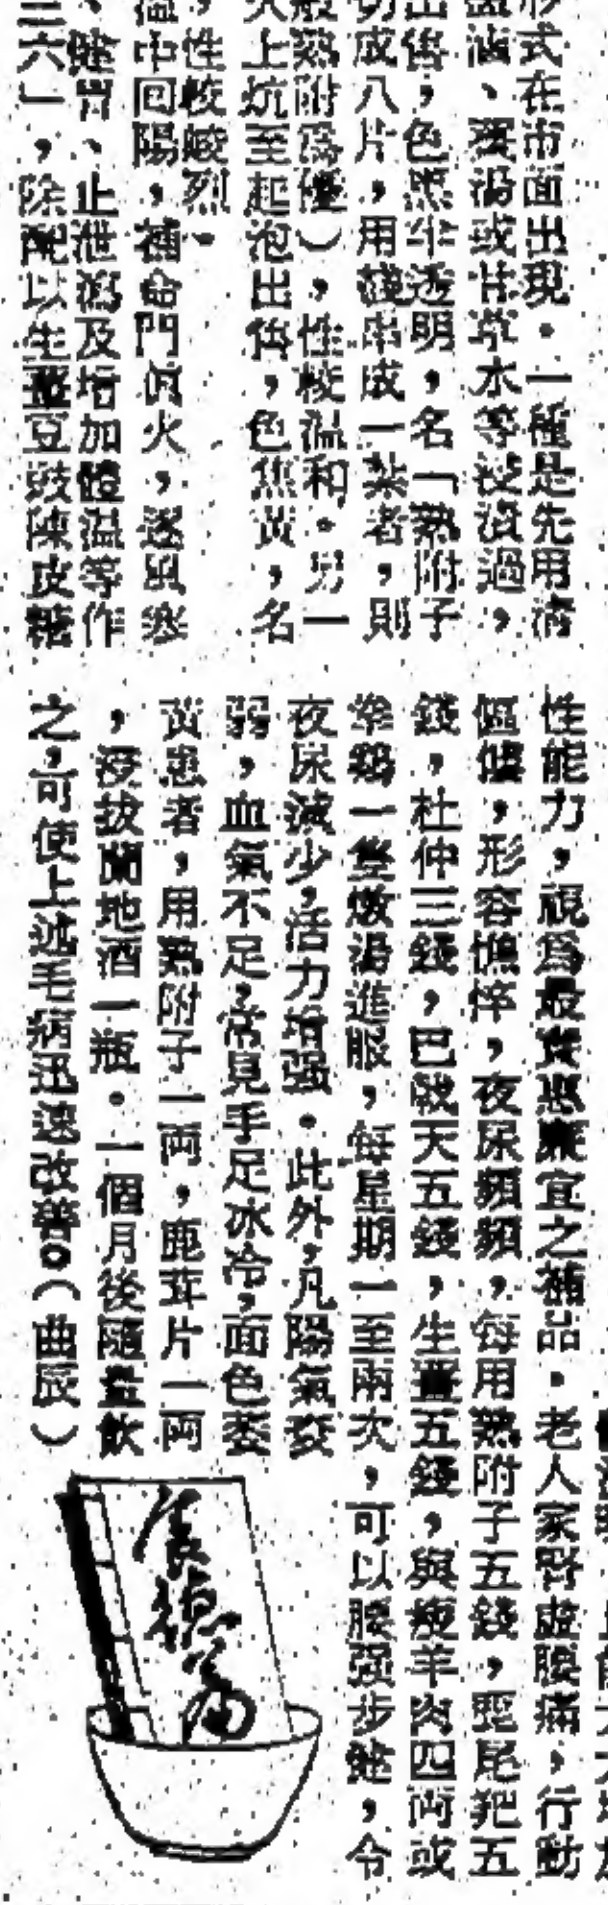 式在市面出現。一種是先用清
滷、薑湯或甘草水等浸漬過,
出售,色黑半透明,名「熟附子
切成八片,用綫串成一紮者,則
般熟附爲優),性較温和。另一
火上炕至起泡出售,色焦黄,名
,性較峻烈。
温中回陽,補命門眞火,逐風寒
、健胃、止泄瀉及增加體温等作
三六」,除配以生薑豆豉陳皮糖
性能力,視爲最實惠廉宜之補品。老人家腎虚腰痛,行動
傴僂,形容憔悴,夜尿頻頻,每用熟附子五錢,尾羓五
錢,杜仲三錢,巴戟天五錢,生薑五錢,與瘦羊肉四両或
鷄一隻燉湯進服,每星期一至兩次,可以腰强步健,令
夜尿減少,活力增强。此外,凡陽氣衰
弱,血氣不足,常見手足冰冷,面色萎
黄患者,用熟附子一両,鹿茸片一両
,浸拔蘭地酒一瓶。一個月後隨量飲
之,可使上述毛病迅速改善。(曲辰)
食德